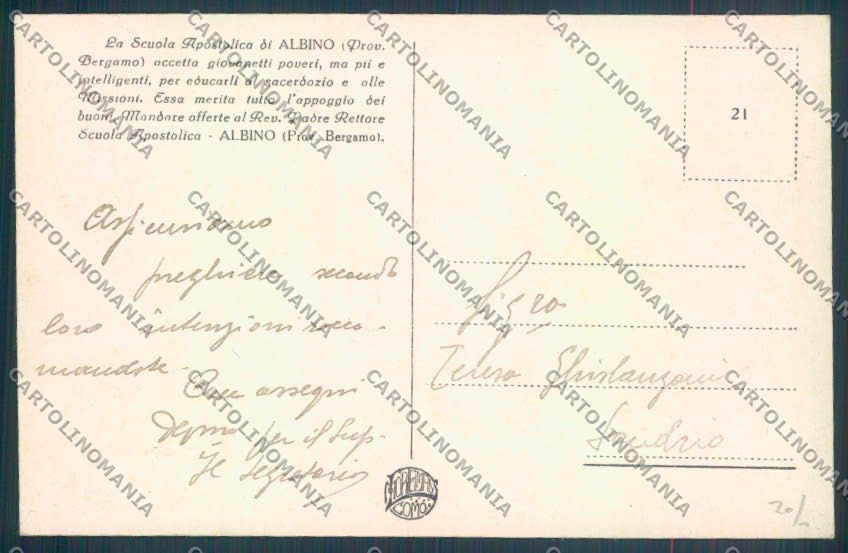 La Scuola Apostolica di ALBINO (Prov.
Bergamo) accetta giovanetti poveri, ma pii e
intelligenti, per educarli al sacerdozio e alle
Missioni. Essa merita tutto l'appoggio dei
buoni. Mandare offerte al Rev. Padre Rettore
Scuola Apostolica - ALBINO (Prov. Bergamo).
21
Assicuriamo
preghiere secondo
loro intenzioni racco-
mandate.
Con ossequi
per il Sup.
Il Segretario
Sig.ra
Teresa Ghislanzoni
Sondrio
COMO
20/
CARTOLINOMANIA